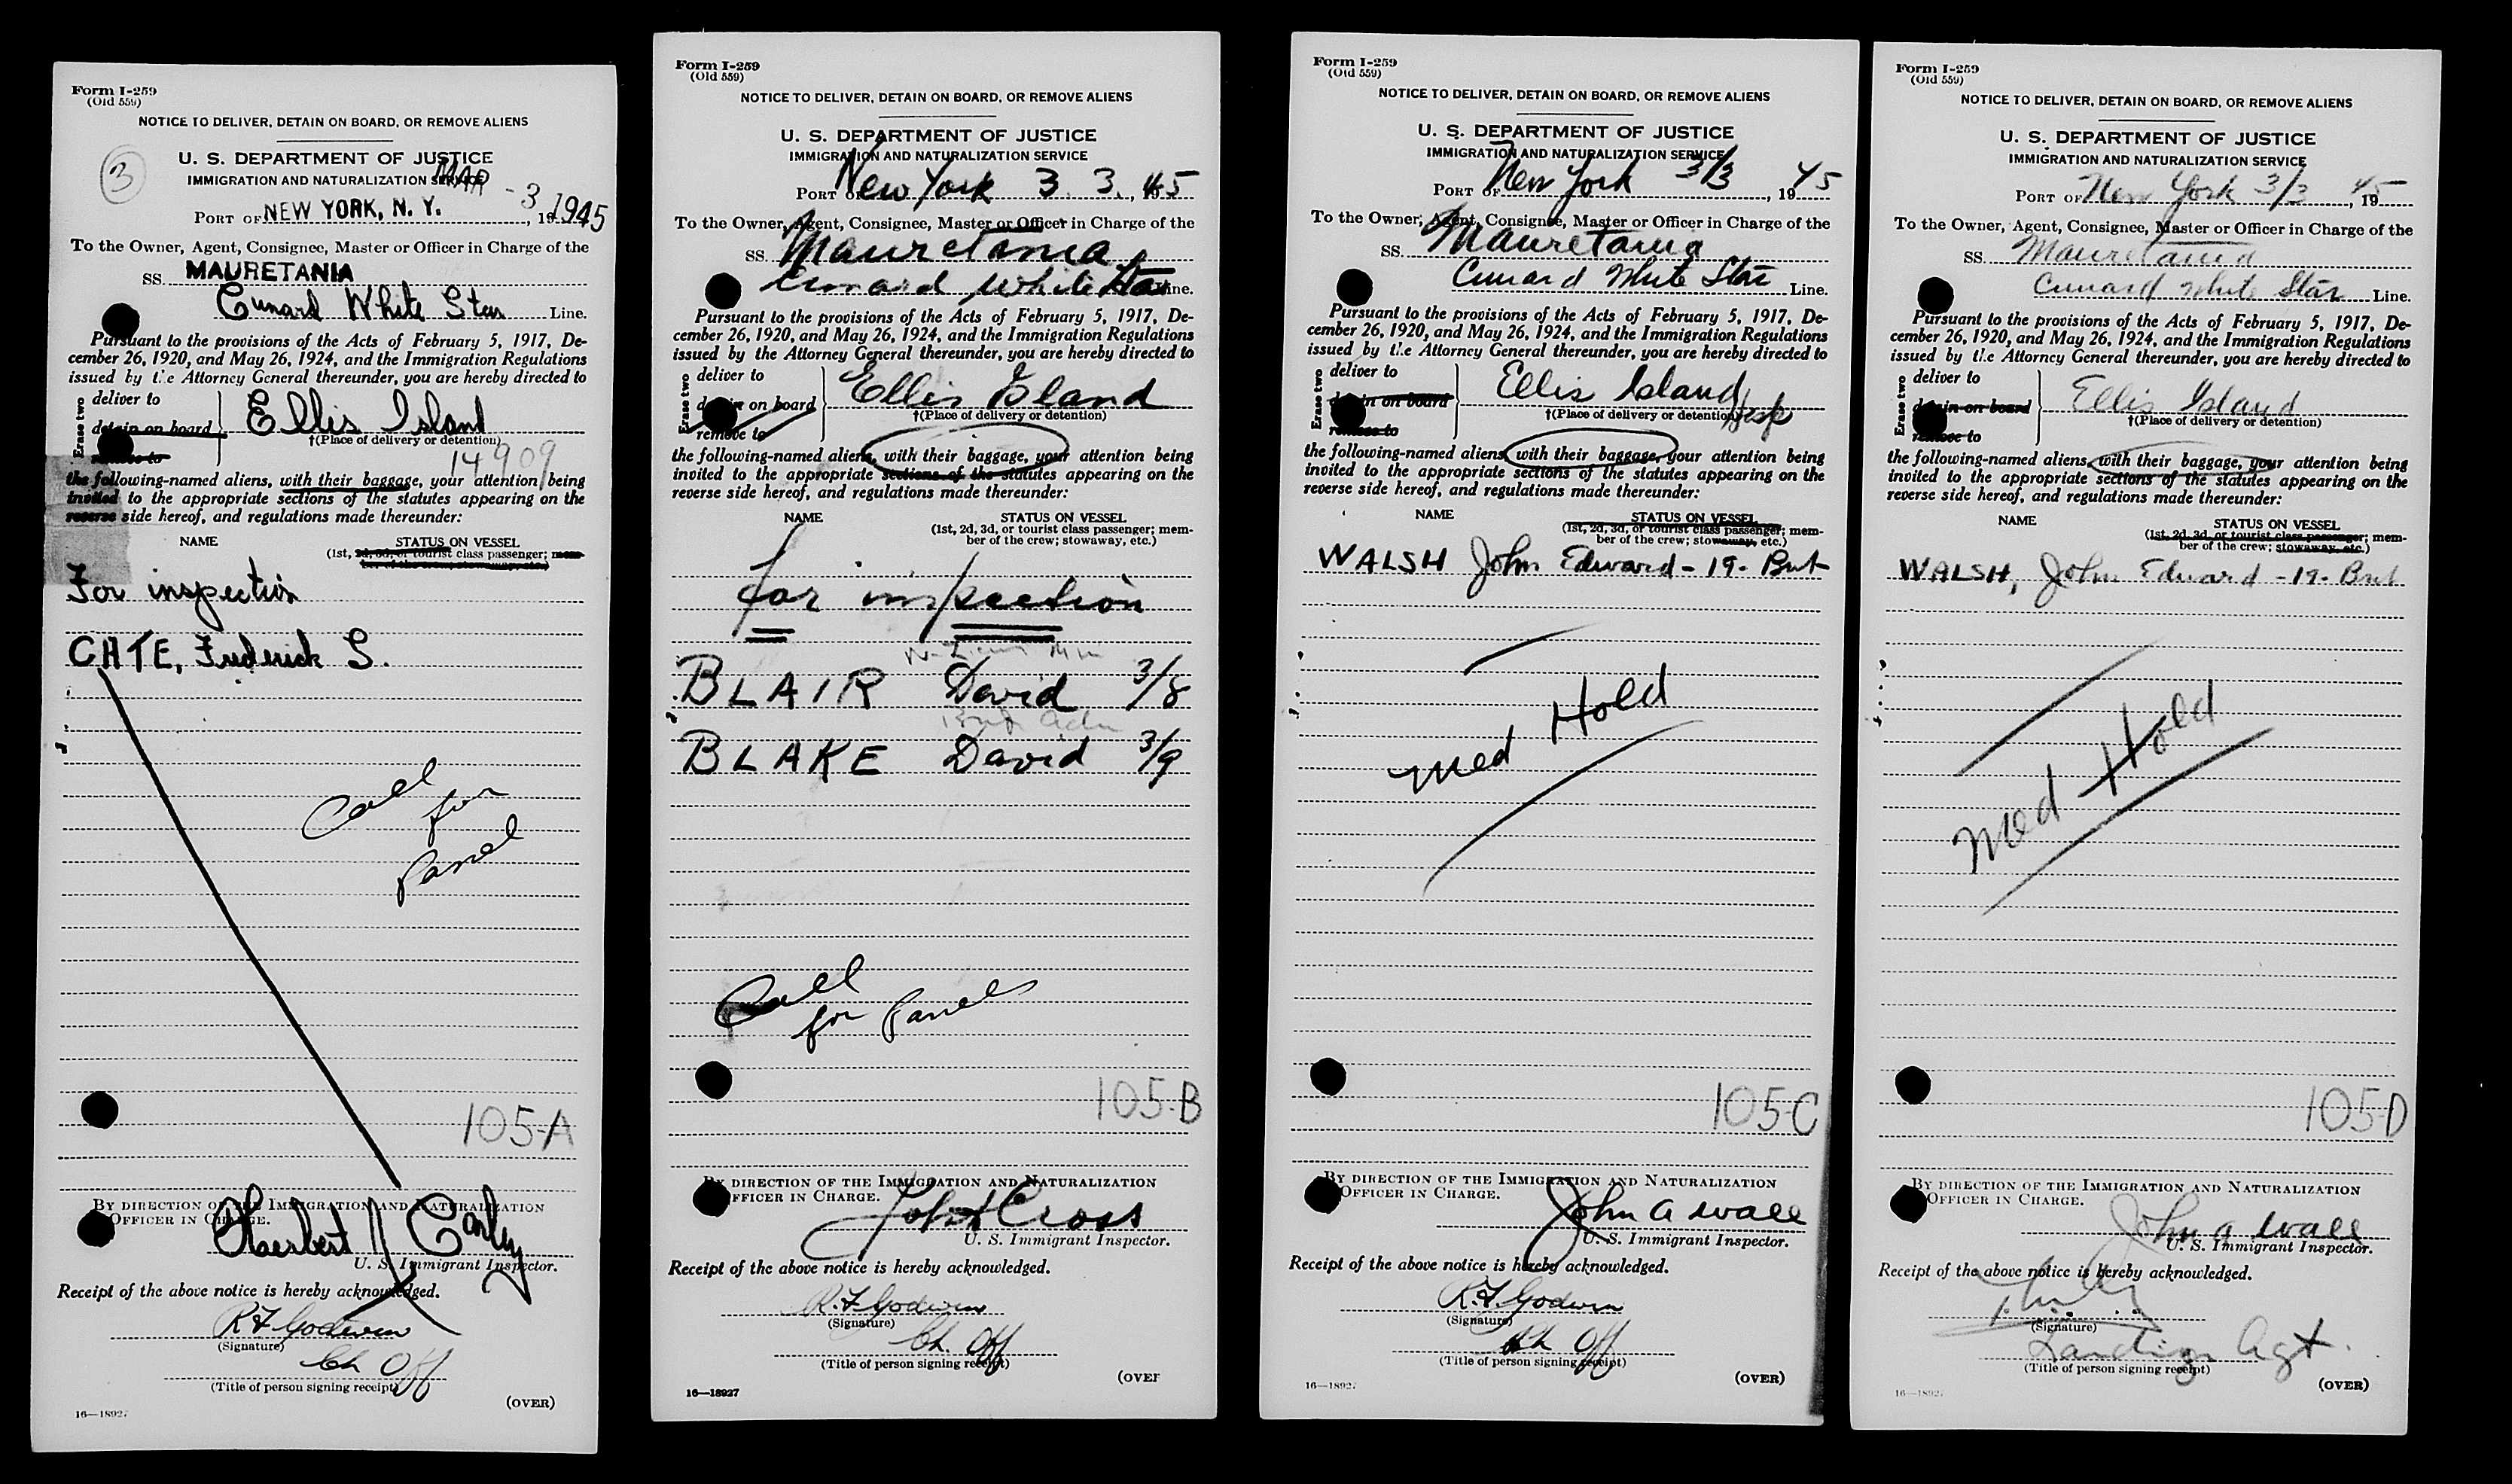 Form I-259
(Old 559)
NOTICE TO DELIVER, DETAIN ON BOARD, OR REMOVE ALIENS
3
U. S. DEPARTMENT OF JUSTICE
IMMIGRATION AND NATURALIZATION SERVICE
PORT OF NEW YORK, N. Y. MAR -3 1945, 19
To the Owner, Agent, Consignee, Master or Officer in Charge of the
SS. MAURETANIA
Cunard White Star Line.
Pursuant to the provisions of the Acts of February 5, 1917, De-
cember 26, 1920, and May 26, 1924, and the Immigration Regulations
issued by the Attorney General thereunder, you are hereby directed to
Erase two
deliver to
detain on board
Ellis Island
†(Place of delivery or detention)
14909
the following-named aliens, with their baggage, your attention being
invited to the appropriate sections of the statutes appearing on the
reverse side hereof, and regulations made thereunder:
NAME STATUS ON VESSEL
(1st, 2d, 3d, or tourist class passenger; mem-
ber of the crew; stowaway, etc.)
For inspection
Frederick S.
Call
for
Panel
105-A
BY DIRECTION OF THE IMMIGRATION AND NATURALIZATION
OFFICER IN CHARGE.
Herbert
U. S. Immigrant Inspector.
Receipt of the above notice is hereby acknowledged.
R F Godwin
(Signature)
Ch Off
(Title of person signing receipt)
(OVER)
16—18927
Form I-259
(Old 559)
NOTICE TO DELIVER, DETAIN ON BOARD, OR REMOVE ALIENS
U. S. DEPARTMENT OF JUSTICE
IMMIGRATION AND NATURALIZATION SERVICE
PORT OF New York 3. 3., 1945
To the Owner, Agent, Consignee, Master or Officer in Charge of the
SS. Mauretania
Cunard White Star Line.
Pursuant to the provisions of the Acts of February 5, 1917, De-
cember 26, 1920, and May 26, 1924, and the Immigration Regulations
issued by the Attorney General thereunder, you are hereby directed to
Erase two
deliver to
detain on board
remove to
Ellis Island
†(Place of delivery or detention)
the following-named aliens, with their baggage, your attention being
invited to the appropriate sections of the statutes appearing on the
reverse side hereof, and regulations made thereunder:
NAME STATUS ON VESSEL
(1st, 2d, 3d, or tourist class passenger; mem-
ber of the crew; stowaway, etc.)
for inspection
BLAIR David 3/8
BLAKE David 3/9
Call
for Panels
105-B
BY DIRECTION OF THE IMMIGRATION AND NATURALIZATION
OFFICER IN CHARGE.
Cross
U. S. Immigrant Inspector.
Receipt of the above notice is hereby acknowledged.
R. F. Godwin
(Signature)
Ch. Off
(Title of person signing receipt)
(OVER
16—18927
Form I-259
(Old 559)
NOTICE TO DELIVER, DETAIN ON BOARD, OR REMOVE ALIENS
U. S. DEPARTMENT OF JUSTICE
IMMIGRATION AND NATURALIZATION SERVICE
PORT OF New York 3/3, 1945
To the Owner, Agent, Consignee, Master or Officer in Charge of the
SS. Mauretania
Cunard White Star Line.
Pursuant to the provisions of the Acts of February 5, 1917, De-
cember 26, 1920, and May 26, 1924, and the Immigration Regulations
issued by the Attorney General thereunder, you are hereby directed to
Erase two
deliver to
detain on board
remove to
Ellis Island Hosp
†(Place of delivery or detention)
the following-named aliens, with their baggage, your attention being
invited to the appropriate sections of the statutes appearing on the
reverse side hereof, and regulations made thereunder:
NAME STATUS ON VESSEL
(1st, 2d, 3d, or tourist class passenger; mem-
ber of the crew; stowaway, etc.)
WALSH John Edward - 19 - Brit
Med Hold
105-C
BY DIRECTION OF THE IMMIGRATION AND NATURALIZATION
OFFICER IN CHARGE.
John A Wall
U. S. Immigrant Inspector.
Receipt of the above notice is hereby acknowledged.
R. F. Godwin
(Signature)
Ch Off
(Title of person signing receipt)
(OVER)
16—18927
Form I-259
(Old 559)
NOTICE TO DELIVER, DETAIN ON BOARD, OR REMOVE ALIENS
U. S. DEPARTMENT OF JUSTICE
IMMIGRATION AND NATURALIZATION SERVICE
PORT OF New York 3/3, 1945
To the Owner, Agent, Consignee, Master or Officer in Charge of the
SS. Mauretania
Cunard White Star Line.
Pursuant to the provisions of the Acts of February 5, 1917, De-
cember 26, 1920, and May 26, 1924, and the Immigration Regulations
issued by the Attorney General thereunder, you are hereby directed to
Erase two
deliver to
detain on board
remove to
Ellis Island
†(Place of delivery or detention)
the following-named aliens, with their baggage, your attention being
invited to the appropriate sections of the statutes appearing on the
reverse side hereof, and regulations made thereunder:
NAME STATUS ON VESSEL
(1st, 2d, 3d, or tourist class passenger; mem-
ber of the crew; stowaway, etc.)
WALSH, John Edward - 19 - Brit
Med Hold
105-D
BY DIRECTION OF THE IMMIGRATION AND NATURALIZATION
OFFICER IN CHARGE.
John A Wall
U. S. Immigrant Inspector.
Receipt of the above notice is hereby acknowledged.
(Signature)
Landing Agt.
(Title of person signing receipt)
(OVER)
16—18927